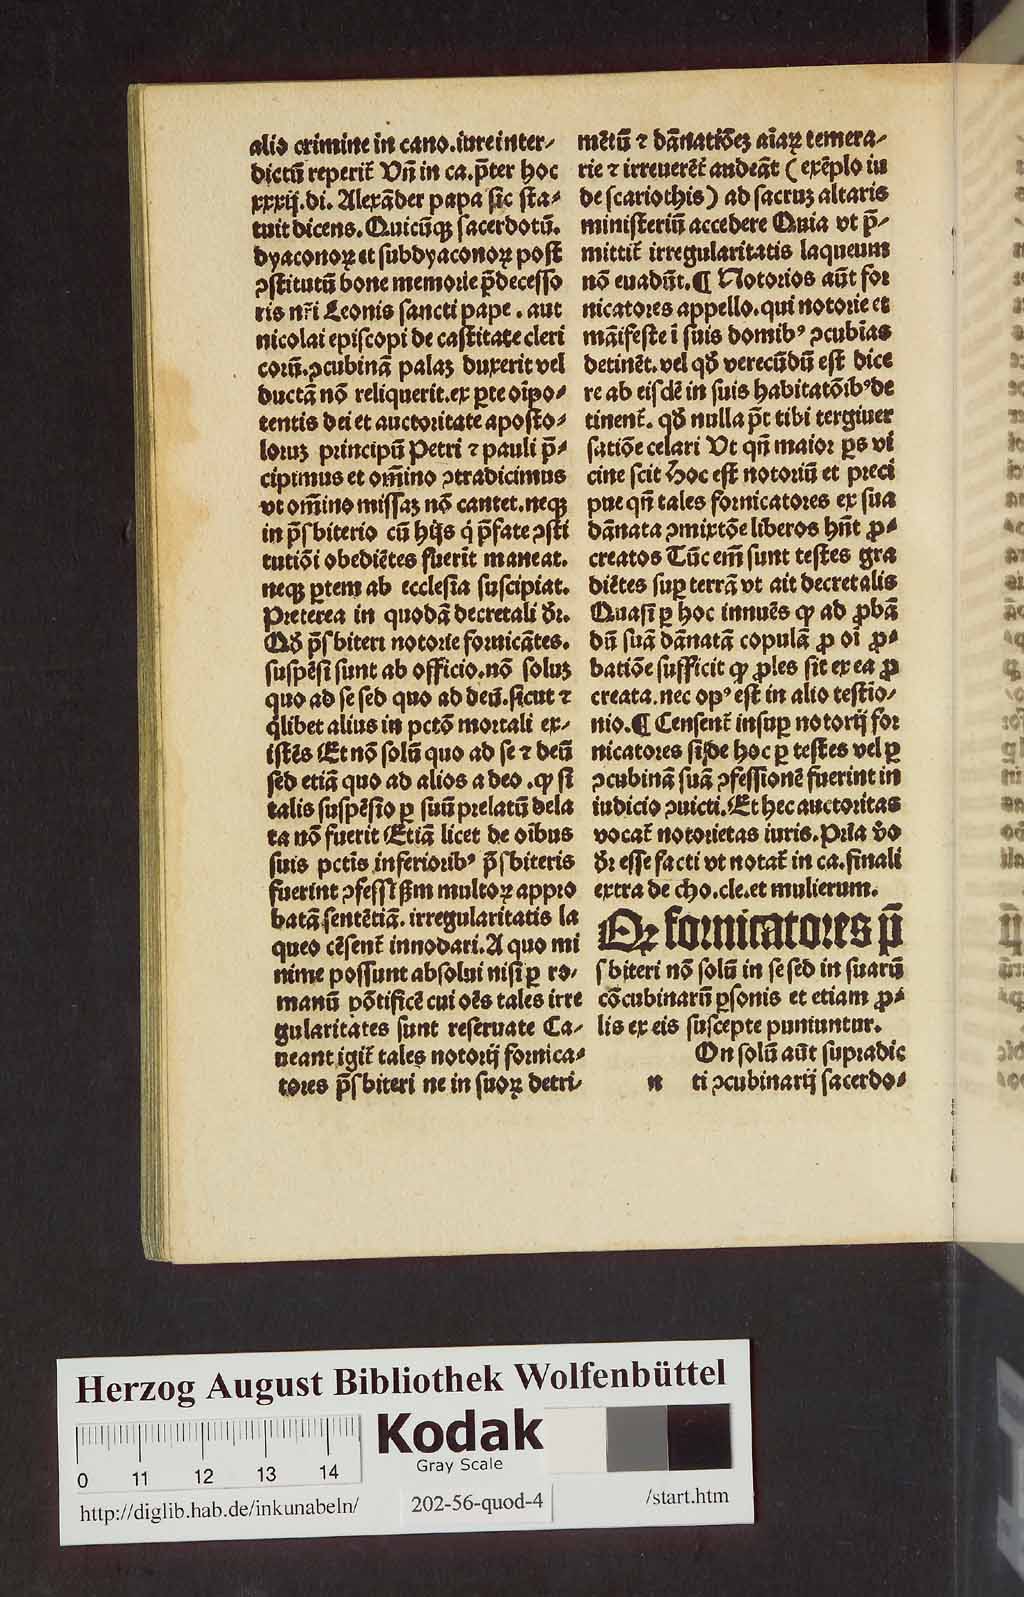 alio crimine in cano.iure inter⸗
dictū reperit̄ Vn̄ in ca.p̄ter hoc
xxxij.di. Alexāder papa sic sta⸗
tuit dicens. Quicūqꝫ sacerdotū.
dyaconoꝝ et subdyaconoꝝ post
ꝯstitutū bone memorie p̄decesso
ris nr̄i Leonis sancti pape . aut
nicolai episcopi de castitate cleri
corū.ꝯcubinā palaꝫ duxerit vel
ductā nō reliquerit.ex ꝑte oīpo⸗
tentis dei et auctoritate aposto⸗
loruꝫ principū Petri ⁊ pauli p̄⸗
cipimus et om̄ino ꝯtradicimus
vt om̄ino missaꝫ nō cantet.neqꝫ
in p̄sbiterio cū hijs q̇ p̄fate ꝯsti
tutiōi obediētes fuerīt maneat.
neqꝫ ꝑtem ab ecclesia suscipiat.
Preterea in quodā decretali dr̄.
Qđ p̄sbiteri notorie fornicātes.
suspēsi sunt ab officio.nō soluꝫ
quo ad se sed quo ad deū.sicut ⁊
q̇libet alius in pctō mortali ex⸗
istēs Et nō solū quo ad se ⁊ deū
sed etiā quo ad alios a deo . ꝙ si
talis suspēsio ꝑ suū prelatū dela
ta nō fuerit Etiā licet de oībus
suis pctis inferiorib⁹ p̄sbiteris
fuerint ꝯfessi ẜm multoꝝ appro
batā sentētiā. irregularitatis la
queo cēsent̄ innodari.A quo mi
nime possunt absolui nisi ꝑ ro⸗
manū pōtificē cui oēs tales irre
gularitates sunt reseruate Ca⸗
ueant igit̄ tales notorij fornica⸗
tores p̄sbiteri ne in suoꝝ detri⸗
mētū ⁊ dānatiōeꝫ aīaꝝ temera⸗
rie ⁊ irreuerēt̄ audeāt (exēplo iu
de scariothis) ad sacruꝫ altaris
ministeriū accedere Quia vt p̄⸗
mittit̄ irregularitatis laqueum
nō euadūt.¶ Notorios aūt for
nicatores appello.qui notorie et
māifeste ī suis domib⁹ ꝯcubīas
detinēt.vel qđ verecūdū est dice
re ab eisdē in suis habitatōīb⁹ de
tinent̄. qđ nulla p̄t tibi tergiuer
satiōe celari Vt qn̄ maior ꝑs vi
cine scit Hoc est notoriū et preci
pue qn̄ tales fornicatores ex sua
dānata ꝯmixtōe liberos hn̄t ꝓ⸗
creatos Tūc em̄ sunt testes gra
diētes suꝑ terrā vt ait decretalis
Quasi ꝑ hoc innuēs ꝙ ad ꝓbā
dū suā dānatā copulā ꝓ oī ꝓ⸗
batiōe sufficit ꝙ ꝓles sit ex ea ꝓ
creata.nec op⁹ est in alio testio⸗
nio.¶ Censent̄ insuꝑ notorij for
nicatores si de hoc ꝑ testes vel ꝑ
ꝯcubinā suā ꝯfessionē fuerint in
iudicio ꝯuicti.Et hec auctoritas
vocat̄ notorietas iuris.Pria v̊o
dr̄ esse facti vt notat̄ in ca.finali
extra de cho.cle.et mulierum.
Qꝝ fornicatores p̄
sbiteri nō solū in se sed in suarū
cōcubinarū ꝑsonis et etiam ꝓ⸗
lis ex eis suscepte puniuntur.
On solū aūt supradic
n ti ꝯcubinarij sacerdo⸗
Herzog August Bibliothek Wolfenbüttel
Kodak
Gray Scale
0 11 12 13 14
http://diglib.hab.de/inkunabeln/ 202-56-quod-4 /start.htm